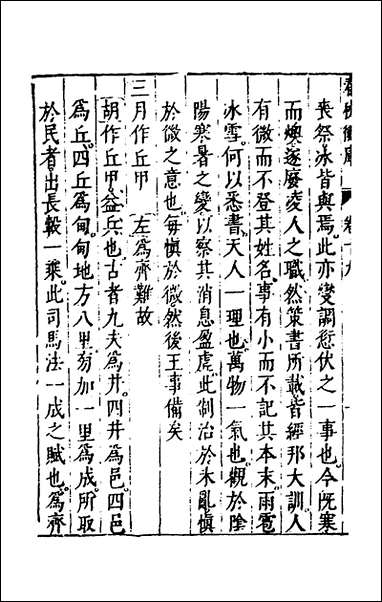 春秋衡庫　卷十九
喪祭冰皆與焉此亦變調愆伏之一事也今旣寒
而燠遂廢凌人之職然策書所載皆經邦大訓人
有微而不登其姓名事有小而不記其本末雨雹
冰雪何以悉書天人一理也萬物一氣也觀於陰
陽寒暑之變以察其消息盈虛此制治於未亂愼
於微之意也每愼於微然後王事備矣
三月作丘甲　左爲齊難故
胡作丘甲益兵也古者九夫爲井四井爲邑四邑
爲丘四丘爲甸甸地方八里旁加一里爲成所取
於民者出長轂一乘此司馬法一成之賦也爲齊